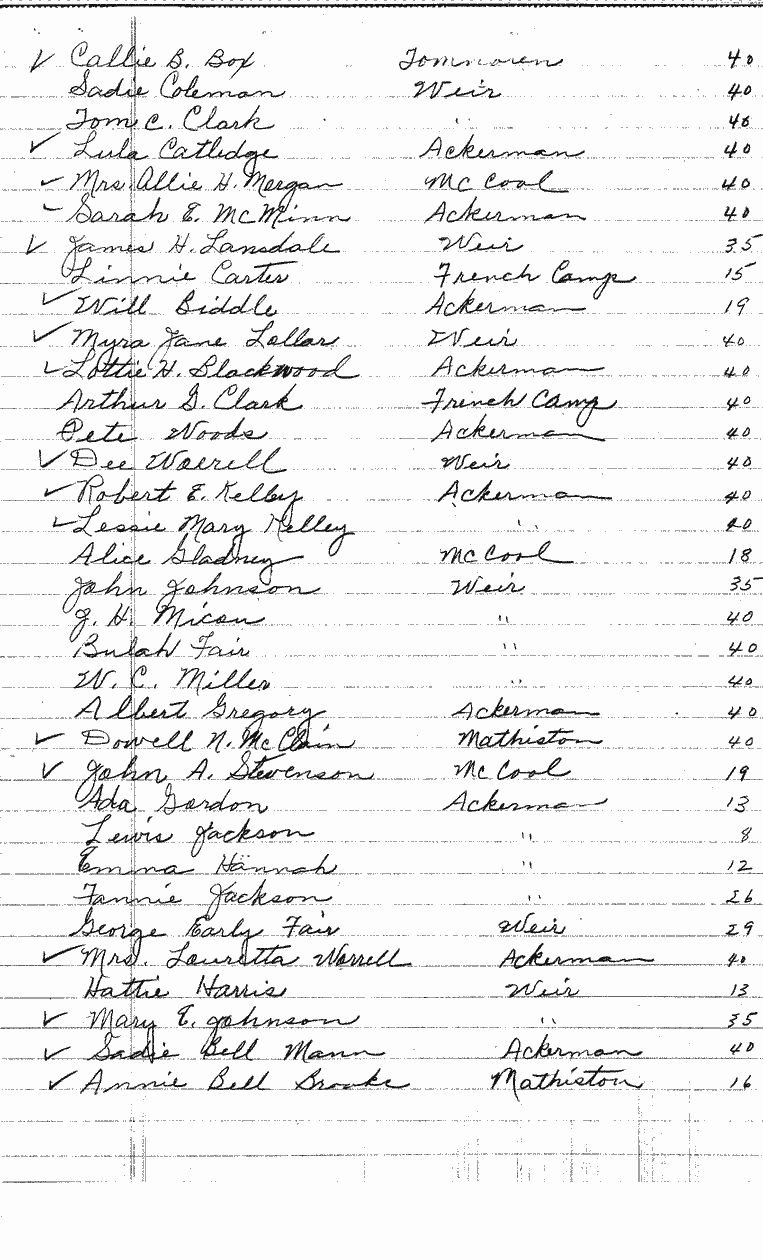 ✓ Callie B. Box Tomnoren 40
Sadie Coleman Weir 40
Tom C. Clark " 40
✓ Lula Catledge Ackerman 40
✓ Mrs. Allie H. Morgan McCool 40
✓ Sarah E. McMinn Ackerman 40
✓ James H. Lansdale Weir 35
Linnie Carter French Camp 15
✓ Will Biddle Ackerman 19
✓ Myra Jane Lollar Weir 40
✓ Lottie H. Blackwood Ackerman 40
Arthur G. Clark French Camp 40
Pete Woods Ackerman 40
✓ Dee Worrell Weir 40
✓ Robert E. Kelley Ackerman 40
✓ Lessie Mary Kelley " 40
Alice Gladney McCool 18
John Johnson Weir 35
J. H. Micou " 40
Bulah Fair " 40
W. C. Miller " 40
Albert Gregory Ackerman 40
✓ Dowell N. McClain Mathiston 40
✓ John A. Stevenson McCool 19
Ada Gordon Ackerman 13
Lewis Jackson " 8
Emma Hannah " 12
Fannie Jackson " 26
George Early Fair Weir 29
✓ Mrs. Louretta Worrell Ackerman 40
Hattie Harris Weir 13
✓ Mary E. Johnson " 35
✓ Sadie Bell Mann Ackerman 40
✓ Annie Bell Brooks Mathiston 16